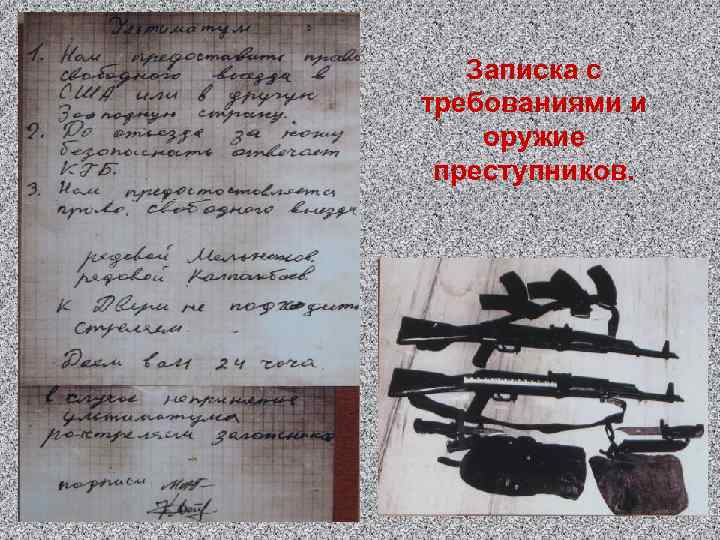 Ультиматум
1. Нам предоставить право
свободного выезда в
США или в другую
Западную страну.
2. До отъезда за нашу
безопасность отвечает
КГБ.
3. Нам предостовляется
право, свободного выезда
рядовой Мельников.
рядовой
К Двери не подходить
стреляем.
Даем вам 24 часа.
в случае непринятие
ультиматума
расстреляем заложника
подписи
Записка с
требованиями и
оружие
преступников.